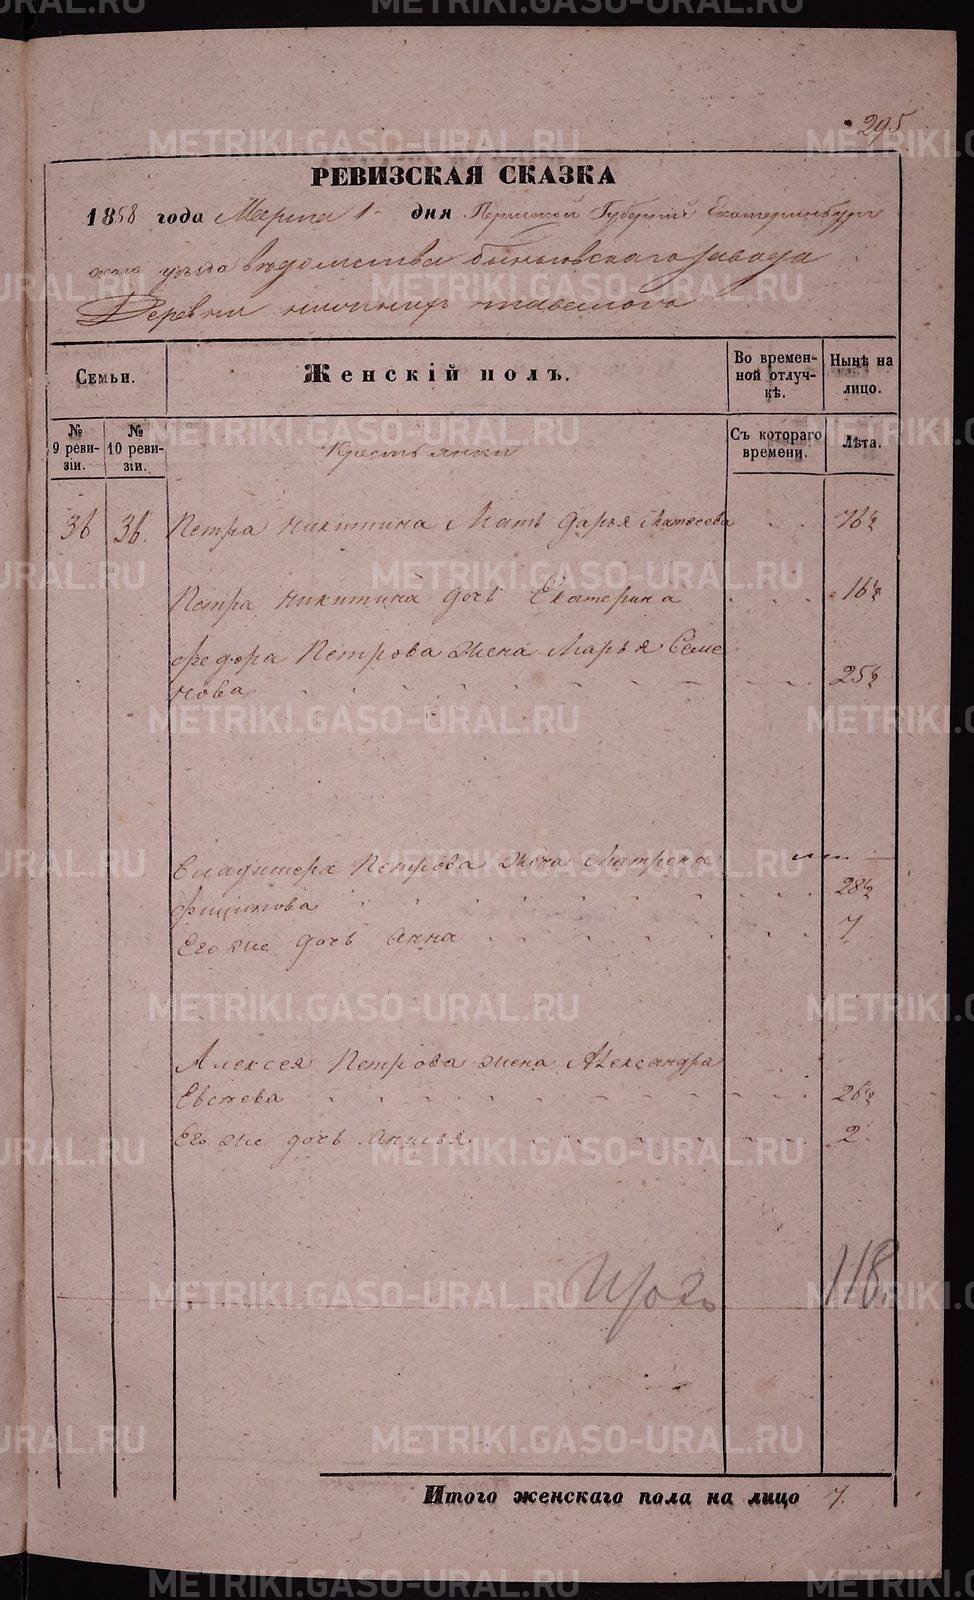 295
РЕВИЗСКАЯ СКАЗКА
1858 года Марта 1 дня Пермской Губерніи Екатеринбург
скаго уезда ведомства быньговскаго завода
Деревни нижнихъ тавологъ
Семьи. Женскій полъ. Во времен- ной отлуч- кѣ. Нынѣ на лицо.
№ 9 реви- зіи. № 10 реви- зіи. Крестьянки Съ котораго времени. Лѣта.
36 36. Петра никитина Мать дарья Матвеева 76½
Петра никитина дочь Екатерина 16½
федора Петрова жена Марья Семе
нова 25½
Владимера Петрова жена Матрена
28½
Его же дочь Анна 7
Алексея Петрова жена Александра
26½
Его же дочь 2
Итого 118.
Итого женскаго пола на лицо 7.
METRIKI.GASO-URAL.RU